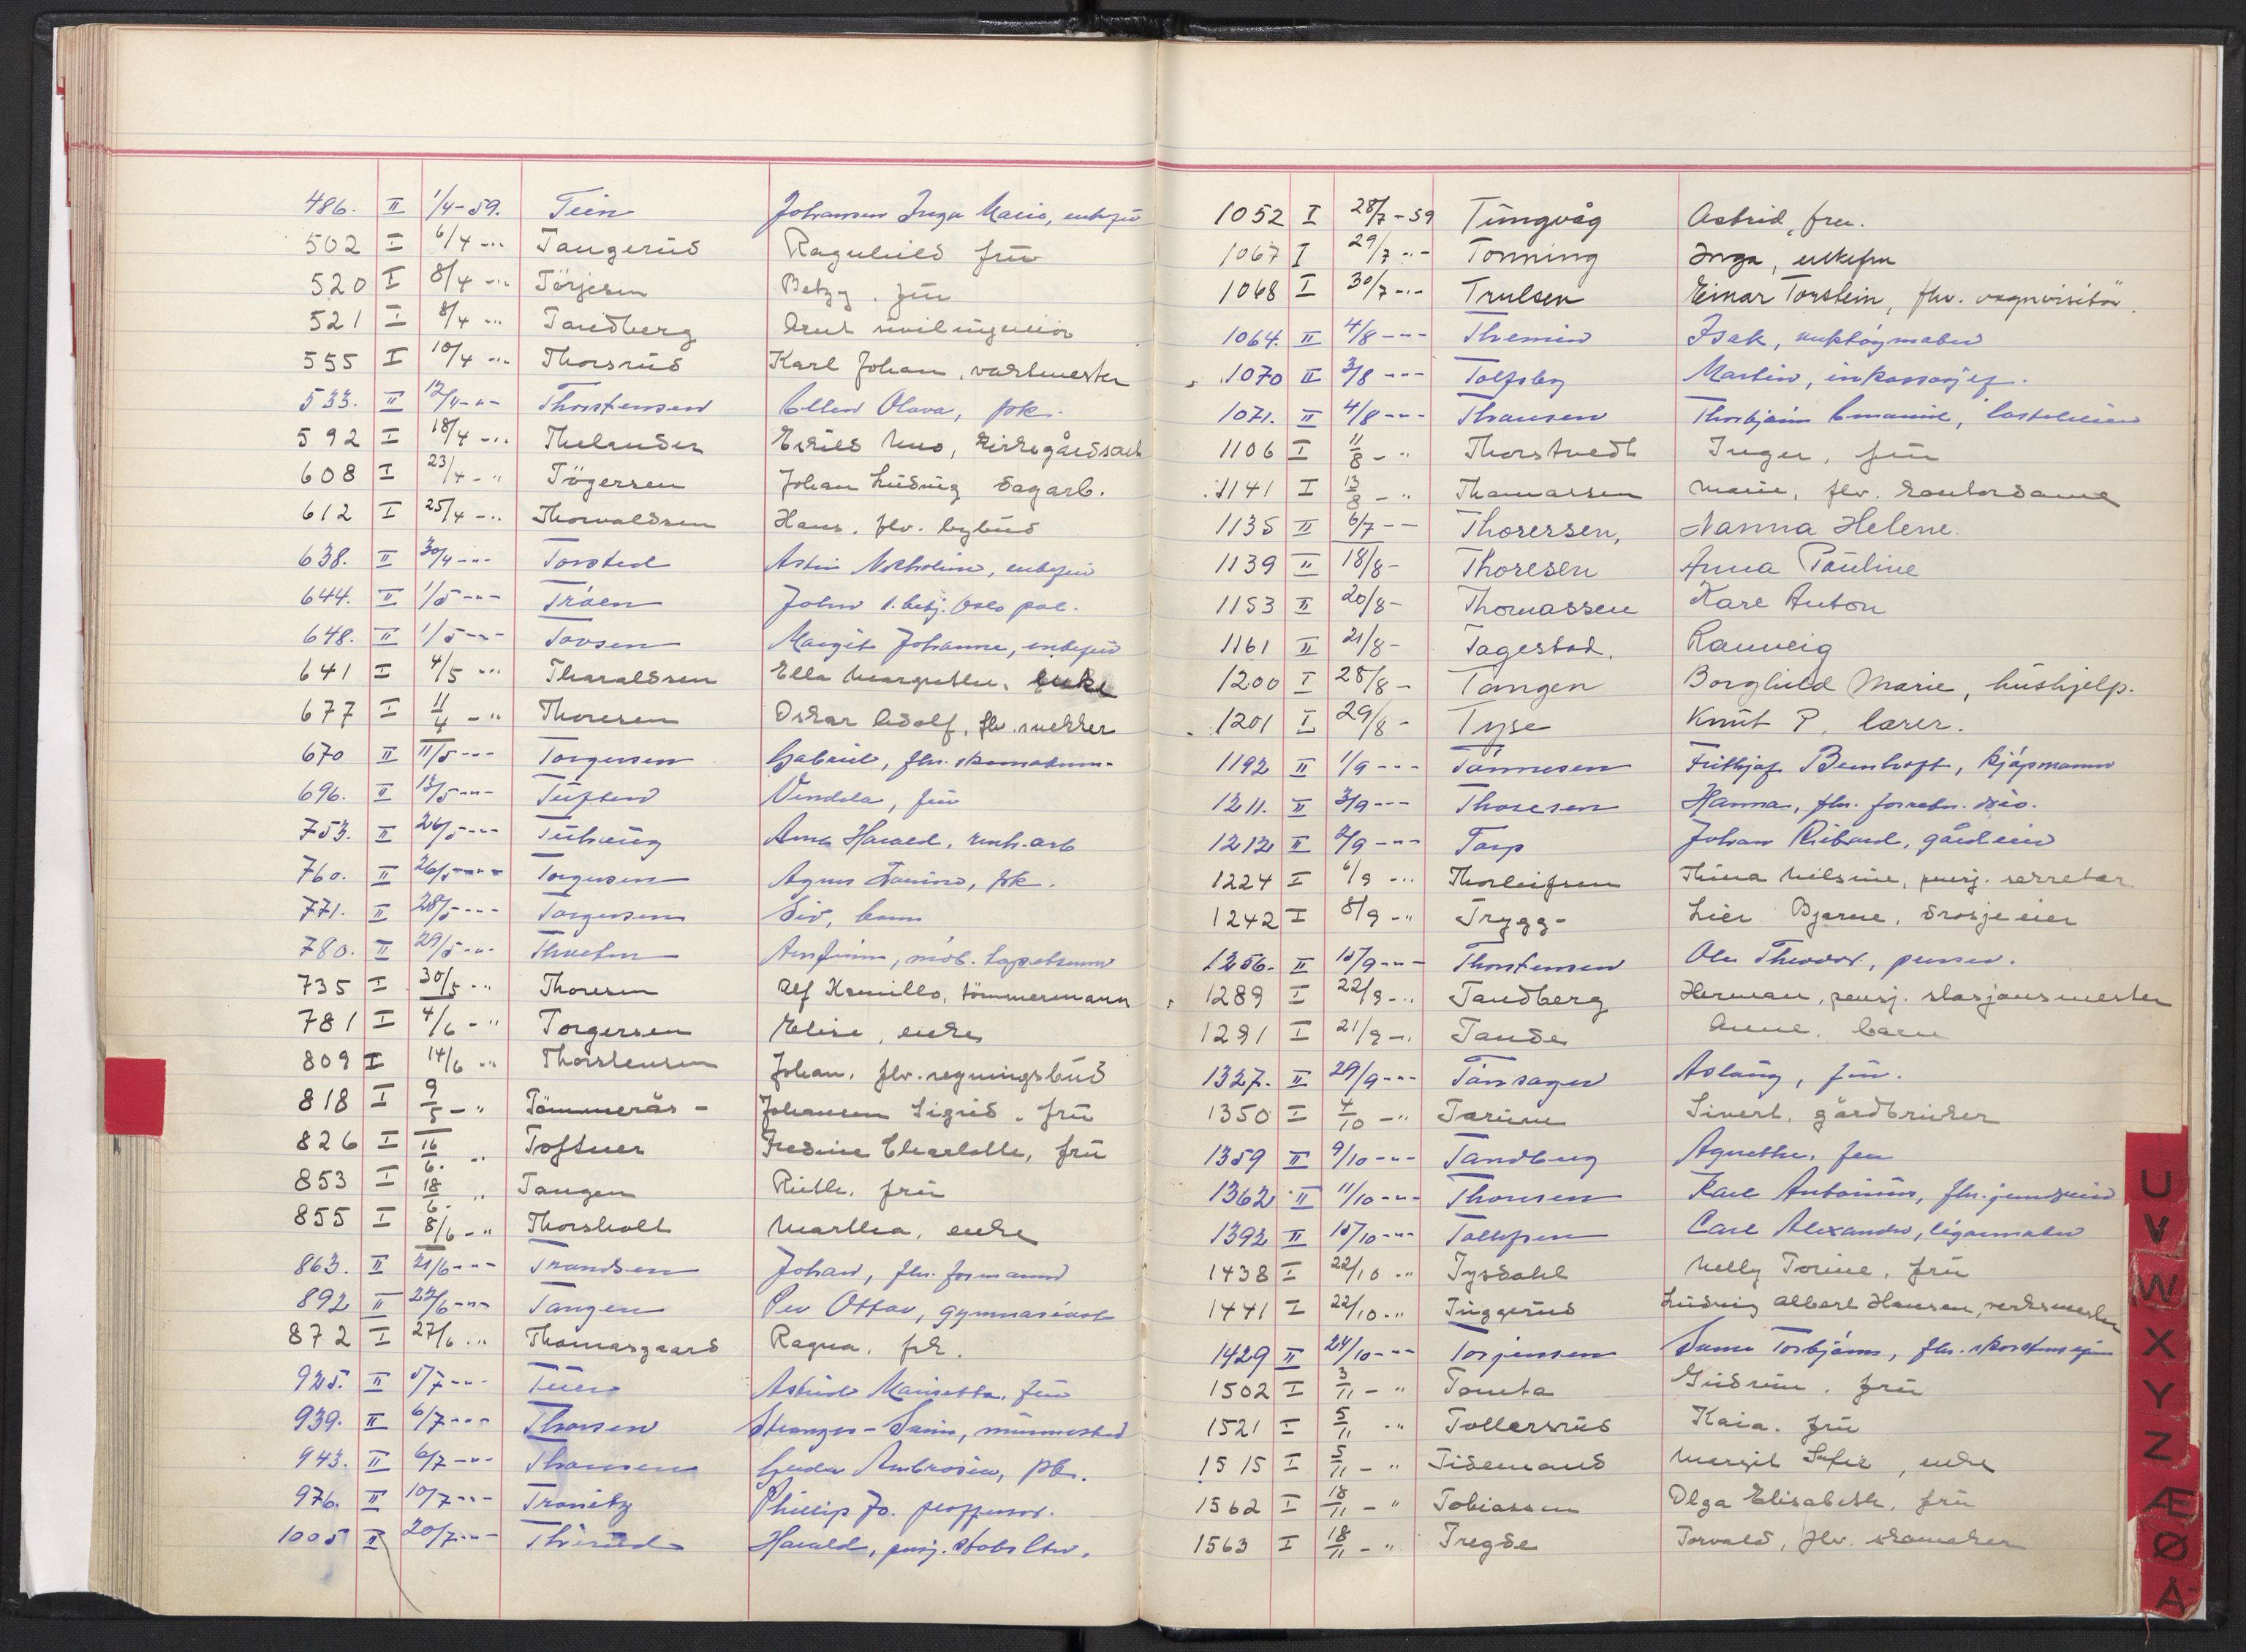 486. II 1/4-59. Tein Johansen Inga Marie, enkefru
502 I 6/4 -"- Tangerud Ragnhild frü
520 I 8/4 -"- Törjesen Betzy. frü
521 I 8/4 -"- Tandberg sivilingeniör
555 I 10/4 -"- Thorsrud Karl Johan, vaktmester
533. II 12/4 -"- Thorstensen Ellen Olava, frk.
592 I 18/4 -"- Thelander Eskild Uno, kirkegårdsarb
608 I 23/4 -"- Tögersen Johan Ludvig sagarb.
612 I 25/4 -"- Thorvaldsen Hans. flv. bybud
638. II 30/4 -"- Torsted enkefru
644. II 1/5 -"- Tråen John 1. betj. Oslo pol.
648. II 1/5 -"- Tovsen Margit Johanne, enkefru
641 I 4/5 -"- Tharaldsen Ella Margrethe, enke
677 I 11/4 -"- Thoresen Oskar Adolf, flv. snekker
670 II 11/5 -"- Torgersen Gabriel, fhv. skomakerm.
696. II 13/5 -"- Tuften Vendela, fru
753. II 26/5 -"- Arne Harald, renh.arb
760. II 26/5 -"- Torgersen Agnes frk.
771. II 28/5 -"- Torgersen Siv, barn
780. II 29/5 -"- Arnfinn, möb. tapetserer
735 I 30/5 -"- Thoresen Alf Kamillo, tömmermann
781 I 4/6 -"- Torgersen Elise, enke
809 I 14/6 -"- Thorstensen Johan, flv. regningsbud
818 I 9/5 -"- Tömmerås - Johansen Sigrid. frü
826 I 16/6. -"- Toftner Fredine Charlotte, frü
853 I 18/6. -"- Tangen Ruth. frü
855 I 8/6 -"- Thorsholt Martha, enke
863. II 21/6 -"- Trandsen Johan, fhv. formann
892 II 22/6 -"- Tangen Per Ottar, gymnasiast
872 I 27/6 -"- Thomasgaard Ragna. frk.
925. II 5/7 -"- Astrid Marietta, fru
939. II 6/7 -"- Thorsen Stranger-
943. II 6/7 -"- Thomsen Gerda Ambrosia, frk.
976. II 10/7 -"- Tronitz Phillip Jo. professor.
1005 II 20/7 -"- Harald, pensj.
1052 I 28/7-59 Tüngvåg Astrid, fru.
1067 I 29/7 -"- Tonning Inga, enkefru
1068 I 30/7 -"- Trulsen Einar Torstein, fhv. vognvisitör.
1064. II 4/8 -"- Isak,
1070 II 3/8 -"- Tolfsby Martin, inkassosjef.
1071. II 4/8 -"- Thorbjörn Emanuel,
1106 I 11/8 -" Thorstvedt Inger, frü
1141 I 13/8 -" Thomassen Marie, flv. kontordame
1135 II 6/7 -- Thoresen, Nanna Helene.
1139 II 18/8- Thoresen Anna Pauline
1153 II 20/8- Thomassen Kare Anton
1161 II 21/8- Tagestad. Rannveig
1200 I 28/8- Tangen Borghild Marie, hüshjelp.
1201 I 29/8- Tyse Knüt P. lærer.
1192 II 1/9 -"- Tönnesen Frithjof Bernhoft, kjöpmann
1211. II 3/9 -"- Thoresen Hanna, fhv. forretn. driv.
1212 II 2/9 -"- Torp Johan Rikard, gårdeier
1224 I 6/9 -"- Thorleifsen Thina Nilsine, pensj. sekretær
1242 I 8/9 -" Trygg- Lier Bjarne, drosjeeier
1256. II 15/9 -"- Thorstensen Ole Theodor, pensj.
1289 I 22/9 -"- Tandberg Herman, pensj. stasjonsmester
1291 I 21/9 -"- Tande Anne, barn
1327. II 29/9 -"- Tönsager Aslaug, fru.
1350 I 4/10 -" Sivert, gårdbruker
1359 II 9/10 -"- Tandberg Agnethe, fru
1362 II 11/10 -"- Thoresen Karl Antonius,
1392 II 15/10 -"- Tollefsen Carl Alexander, sigarmaker
1438 I 22/10 -" Tysdahl Nelly Torine, frü
1441 I 22/10 -" Tuggerud Ludvig Albert Hansen, verksmester
1429 II 24/10 -"- Torjussen Torbjörn, fhv.
1502 I 3/11 -" Tomta Gudrun. frü
1521 I 5/11 -" Tollersrud Kaia. frü
1515 I 5/11 -" Tidemand Margit Sofie, enke
1562 I 18/11 -" Tobiassen Olga Elisabeth, frü
1563 I 18/11 -" Tregde Torvald, flv. skomaker
U
V
W
X
Y
Z
Æ
Ø
Å